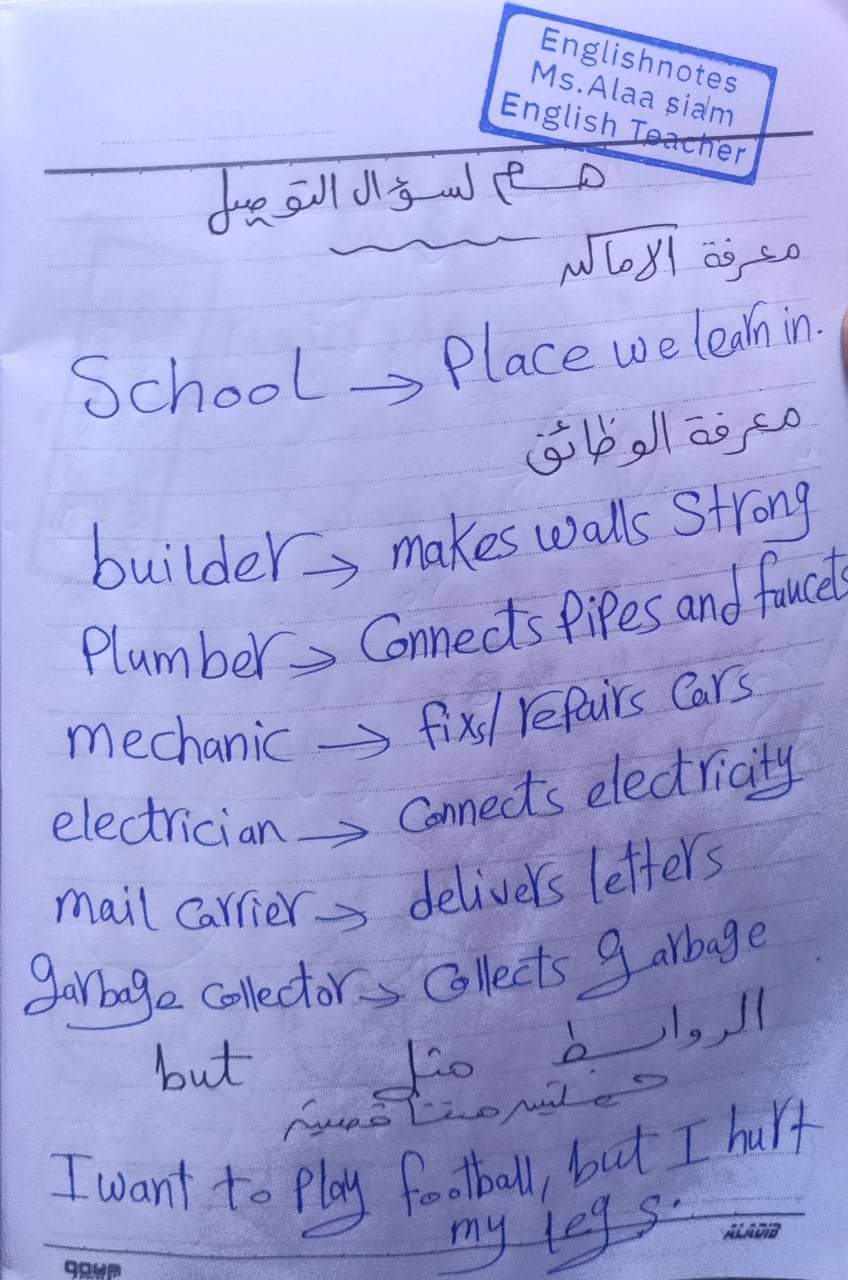 Englishnotes
Ms.Alaa siam
English Teacher
هــام لسؤال التوصيل
معرفة الاماكن
School → Place we learn in.
معرفة الوظائف
builder → makes walls Strong
Plumber → Connects Pipes and faucets
mechanic → fixs/ repairs Cars
electrician → Connects electricity
mail Carrier → delivers letters
garbage Collector → Collects garbage
الروابط مثل but
جملتين متناقضين
I want to Play football, but I hurt
my legs.
ALADIB